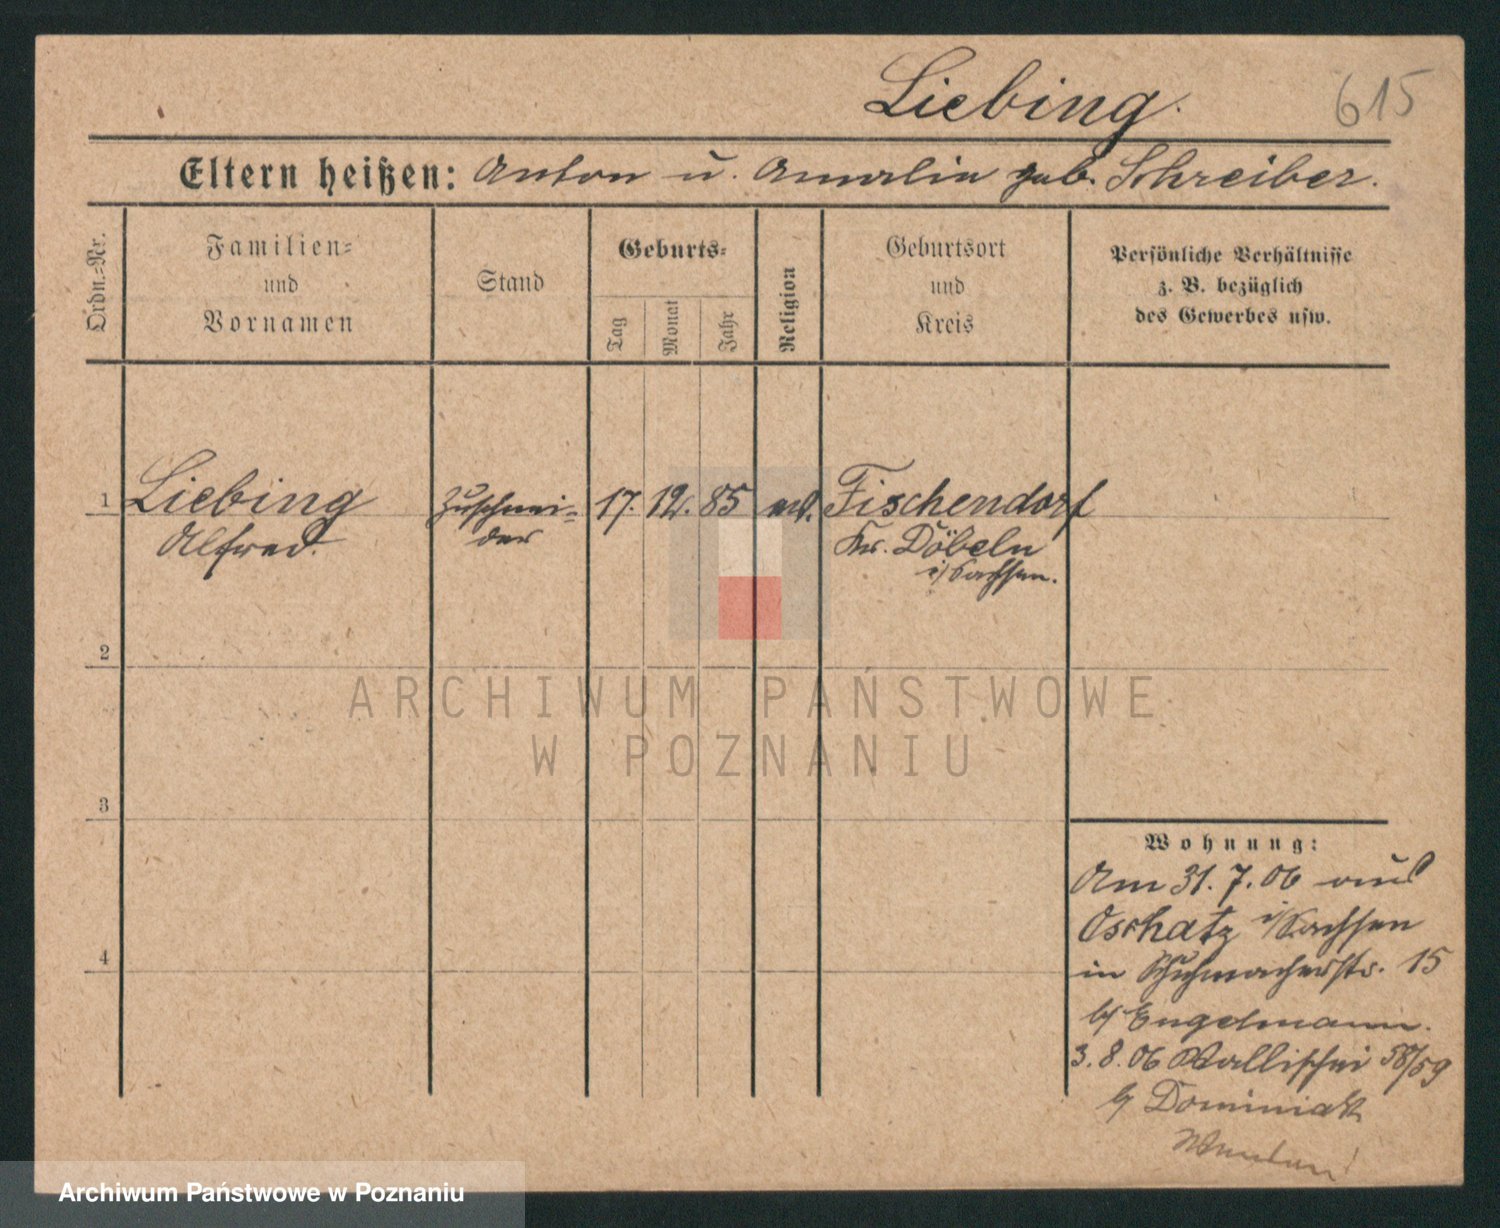 Liebing.
615
Eltern heißen: Anton u. Amalie geb. Schreiber.
Ordn.=Nr.
Familien=
und
Vornamen
Stand
Geburts=
Tag
Monat
Jahr
Religion
Geburtsort
und
Kreis
Persönliche Verhältnisse
z. B. bezüglich
des Gewerbes usw.
1
Liebing
Alfred.
Zuschnei=
der
17. 12. 85
Fischendorf
Kr. Döbeln
i/Sachsen.
2
ARCHIWUM PAŃSTWOWE
W POZNANIU
3
4
Wohnung:
Am 31. 7. 06 aus
Oschatz i/Sachsen
in Schuhmacherstr. 15
b/ Engelmann.
3. 8. 06 Wallischei 58/59
b/ Dominiak
Archiwum Państwowe w Poznaniu